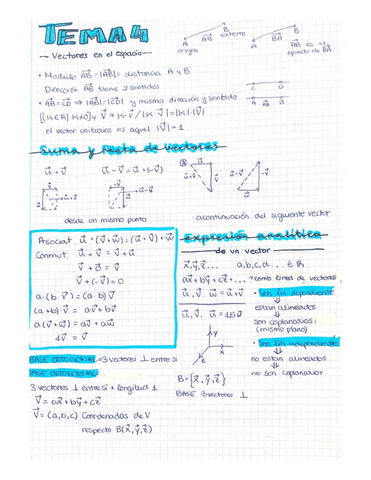 TEMA 4
- Vectores en el espacio -
A origen AB B extremo
A AB B AB es el opuesto de BA
• Modulo AB = |AB| = distancia A y B
Dirección AB tiene 2 sentidos
• AB = CD ⇒ |AB| = |CD| y misma dirección y sentido
C D
A AB B
[K∈R] K≠0] y V ⇒ K·V / |K·V| = |K|·|V|
el vector unitario es aquel |V| = 1
Suma y resta de vectores
u + v
u - v = u + (-v)
desde un mismo punto
· a continuación del siguiente vector
Asociat. u + (v + w) = (u + v) + w
Conmut. u + v = v + u
v + 0 = v
v + (-v) = 0
a·(b·v) = (a·b)·v
(a+b)·v = av + bv
a(v + w) = av + aw
1v = v
expresión analítica
de un vector
x, y, z... a, b, c, d... ∈ R
ax + by + cz + ... → comb lineal de vectores
u, v w = u + v
u, v, u = 1.5v
• Son lin dependiente
↓
estan alineados
↓
son coplanarios
(mismo plano)
• Son lin independientes
↓
no estan alineados
↓
no son coplanarios
x y z
B = {x, y, z}
BASE 3 vectores ⊥
BASE ORTOGONAL = 3 vectores ⊥ entre si
BASE ORTONORMAL =
3 vectores ⊥ entre si + longitud 1
V = ax + by + cz
V = (a, b, c) Coordenadas de V
respecto B(x, y, z)